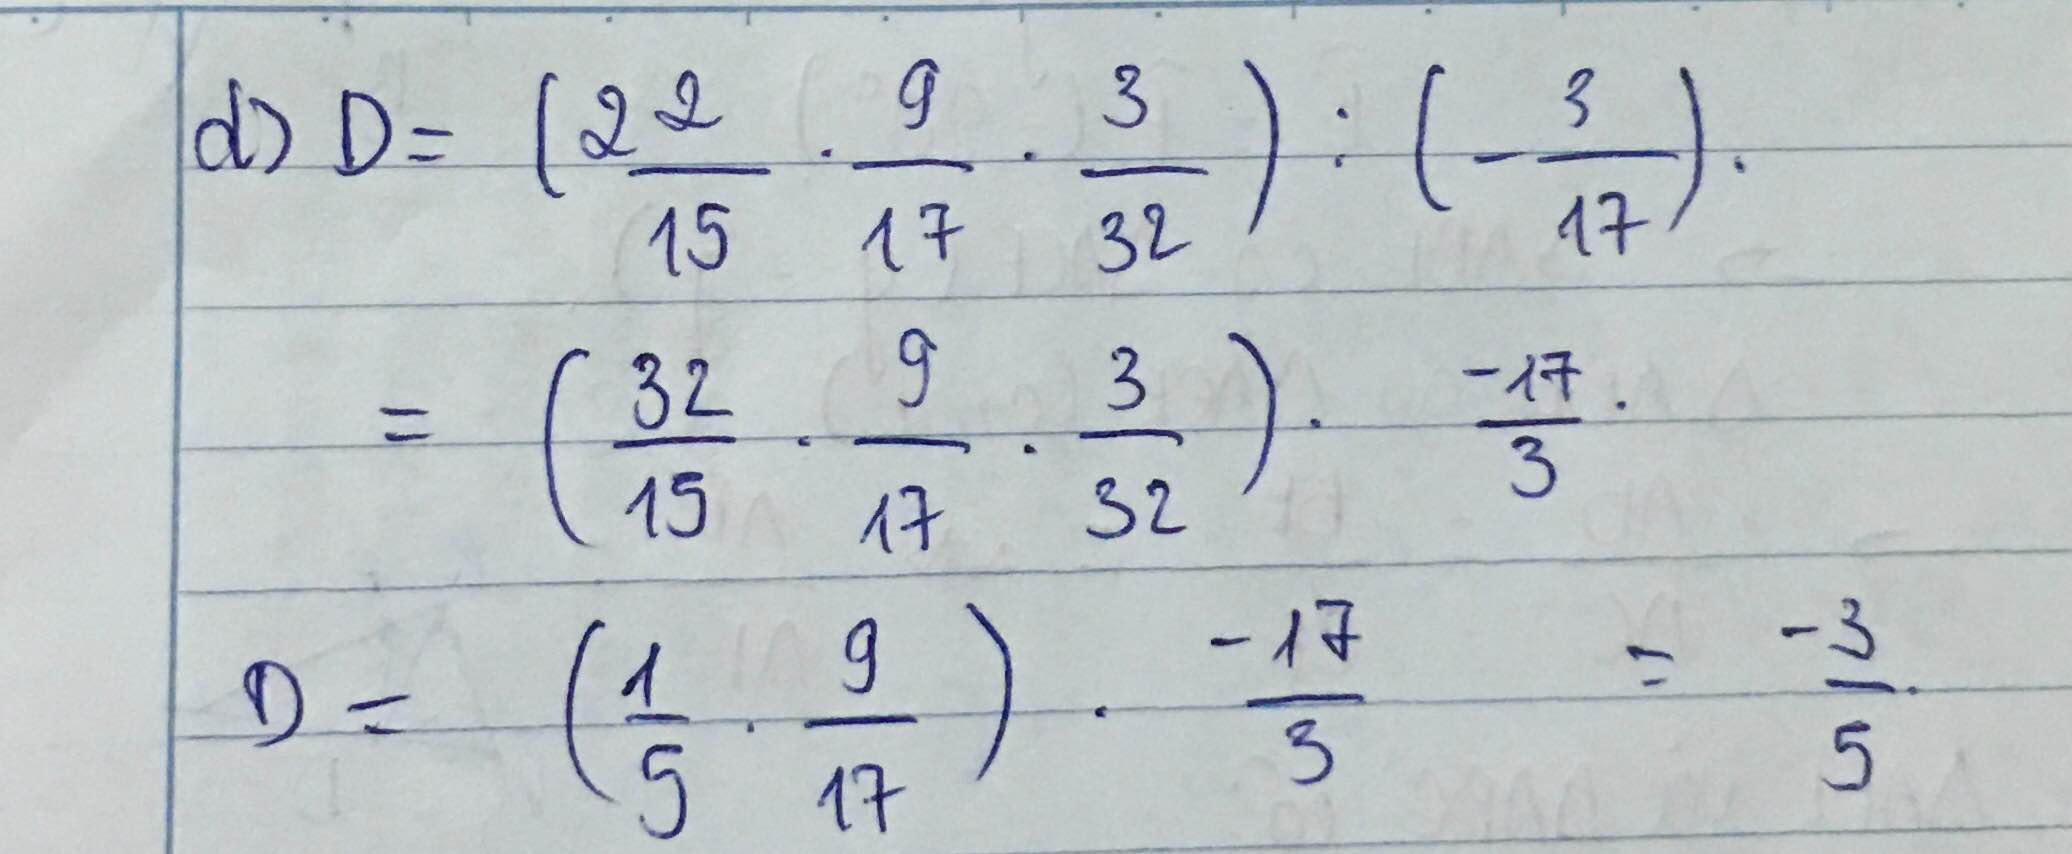 d) D = (2 2/15 . 9/17 . 3/32) : (- 3/17).
= (32/15 . 9/17 . 3/32) . -17/3.
D = (1/5 . 9/17) . -17/3 = -3/5.